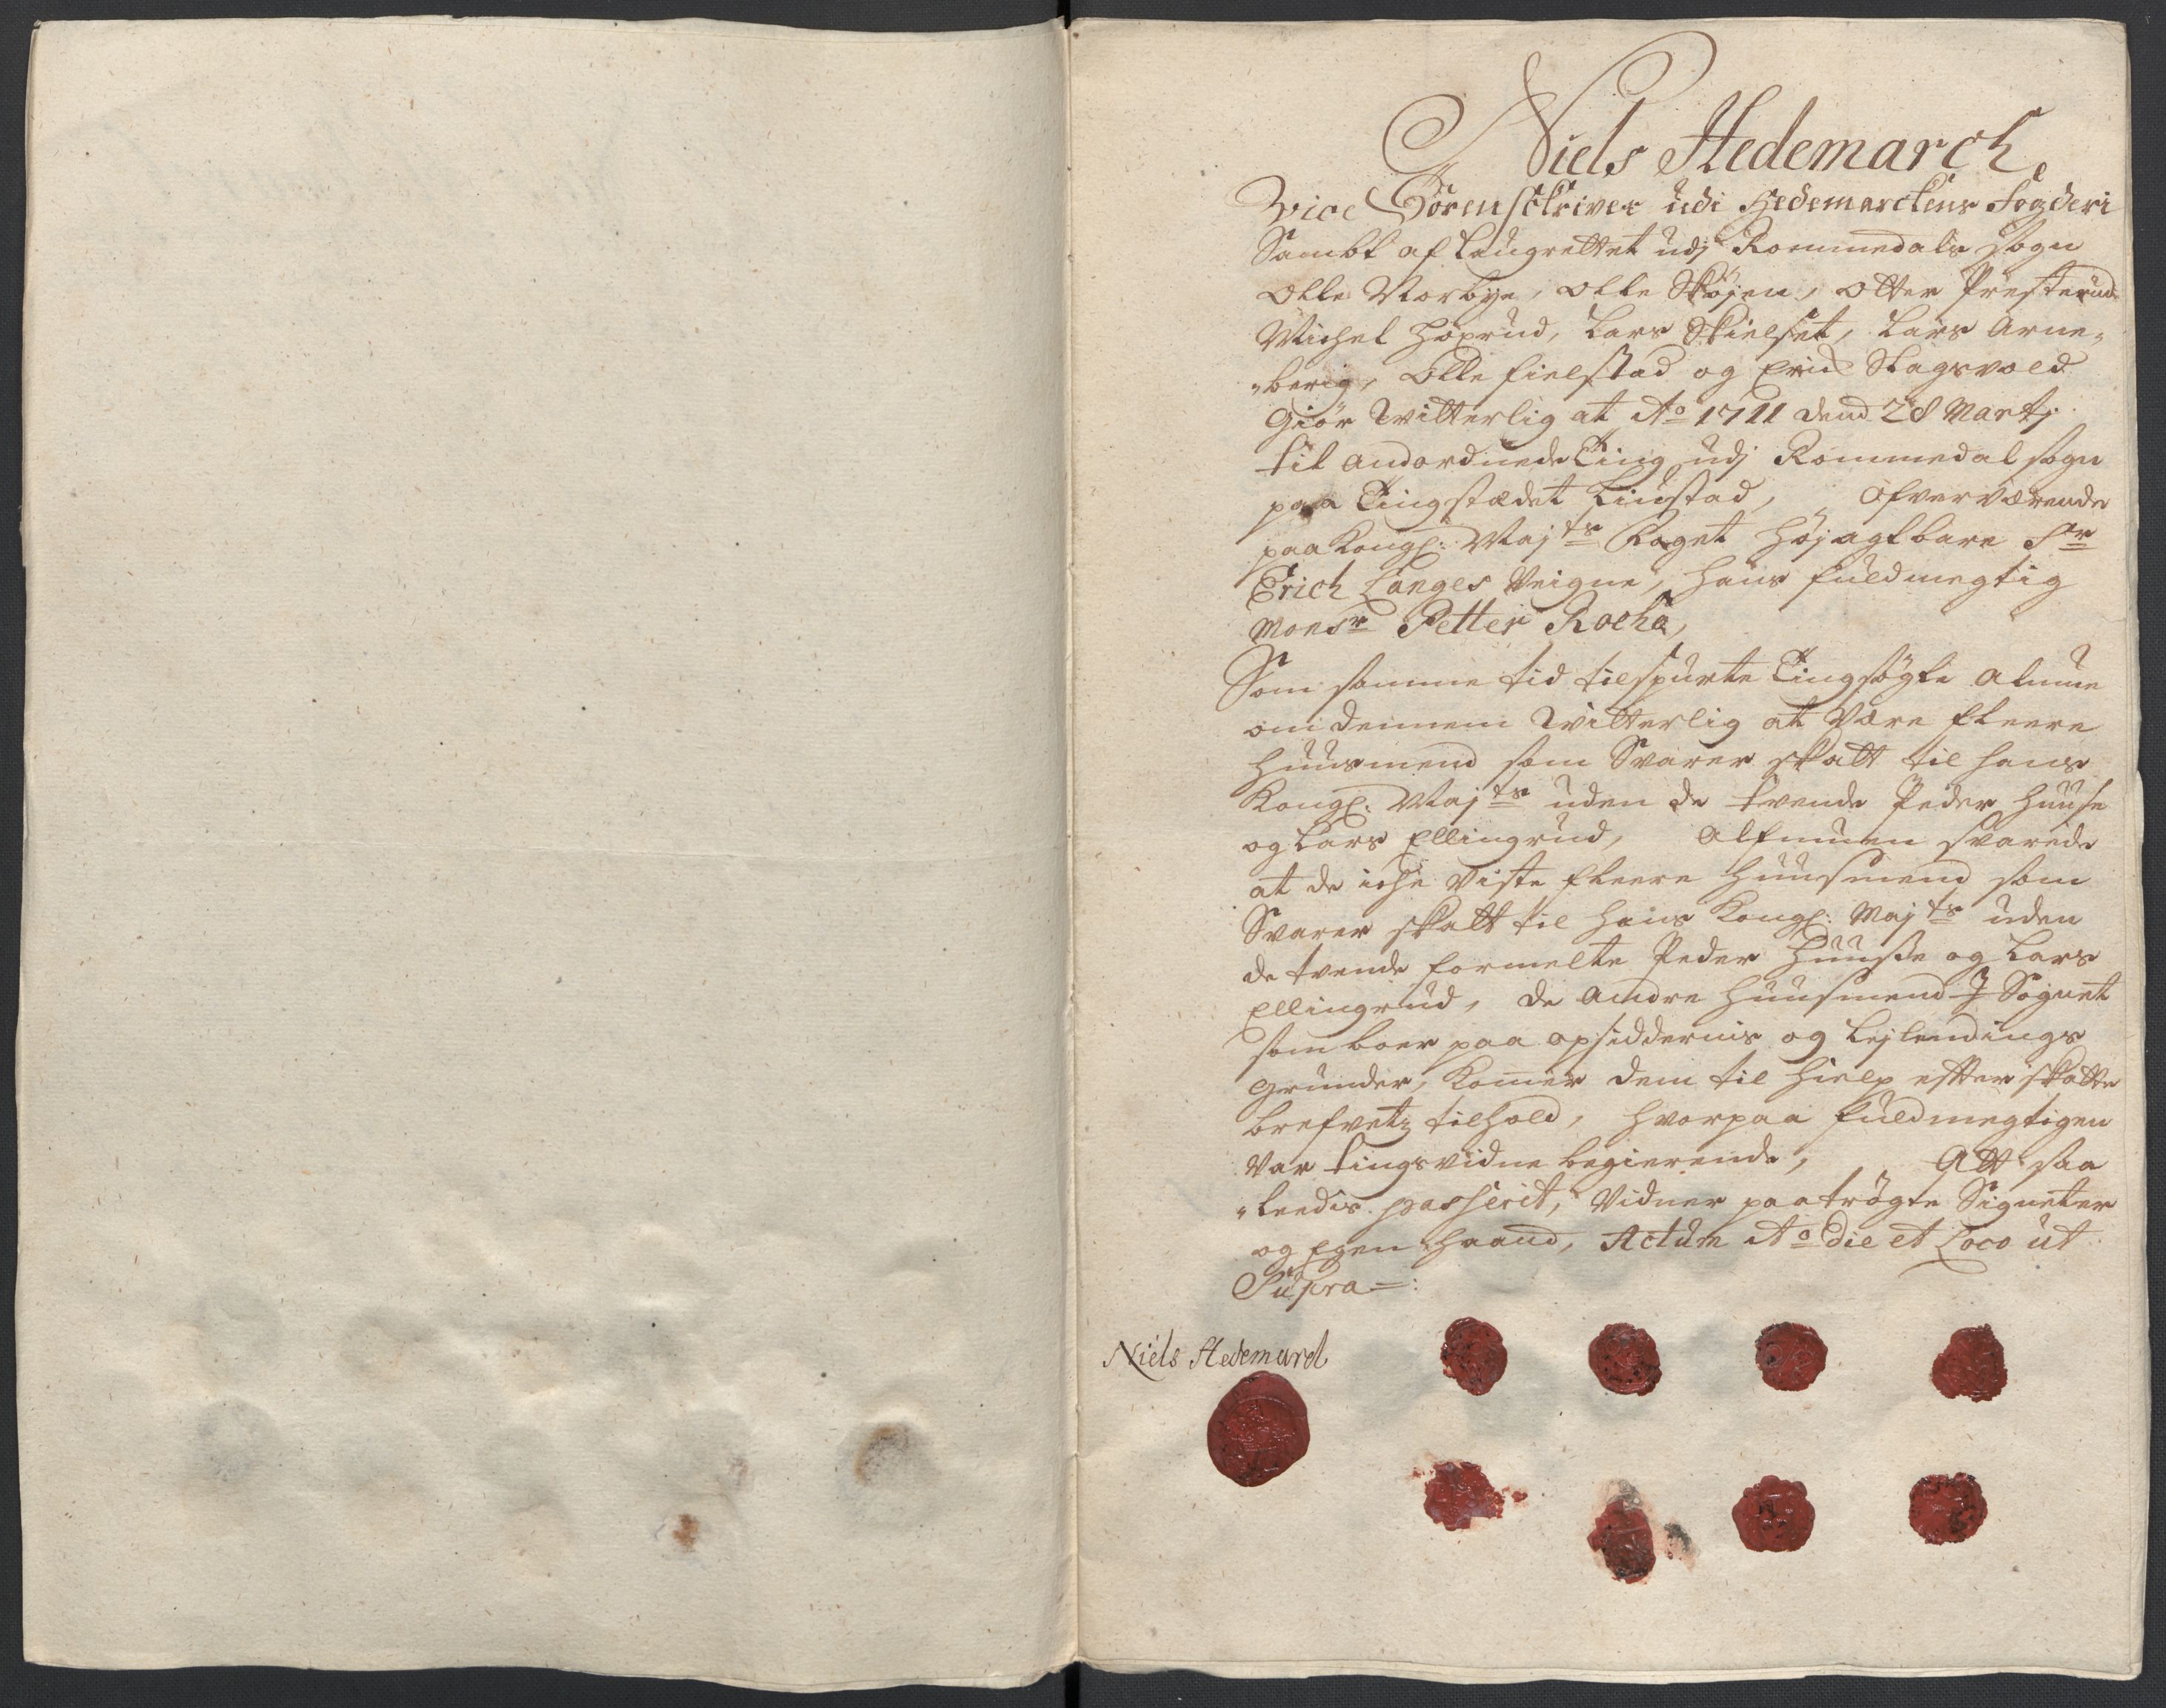 Niels Hedemarch
Vice Sorenschriver udi Hedemarckens Fogderi
Sambt af Laugrettet udj Rommedals Sogn
Olle Norbye, Olle Skøjen, Otter Præsterud
Michel Hoprud, Lars Skielset, Lars Arne-
-berig, Olle Fielstad og Erich Stagsvold
Giør Witterlig at Ao 1711 dend 28 Martj
til andordnede Ting udj Rommedal sogn
paa Tingstædet Liustad, ofververende
paa Kongl: Mayts Foget Høj agtbare Sr
Erich Langes Veigne, hans fuldmegtig
Monsr Petter Rocha,
Som samme tid tilspurte Tingsøgte Almue
om dennem Witterlig at Være fleere
Huusmend som Svarer skatt til hans
Kongl: Mayts uden de tvende Peder Huuse
og Lars Ellingrud, Alfmuen svarede
at de iche Viste fleere Huusmend som
Svarer skatt til hans Kongl: Mayts uden
de tvende formelte Peder Huusse og Lars
Ellingrud, de Andre Huusmend J Sognet
som boer paa opsiddernis og Lejlendings
grunder, Komer dem til hielp efter skatte
brefvetz tilhold, hvorpaa fuldmegtigen
Var tingsvidne begierende, Att saa
-leedis passerit, Vidner paatrøgte Signeter
og Egen haand, Actum Ao die et Loco ut
Supra
Niels Hedemarch